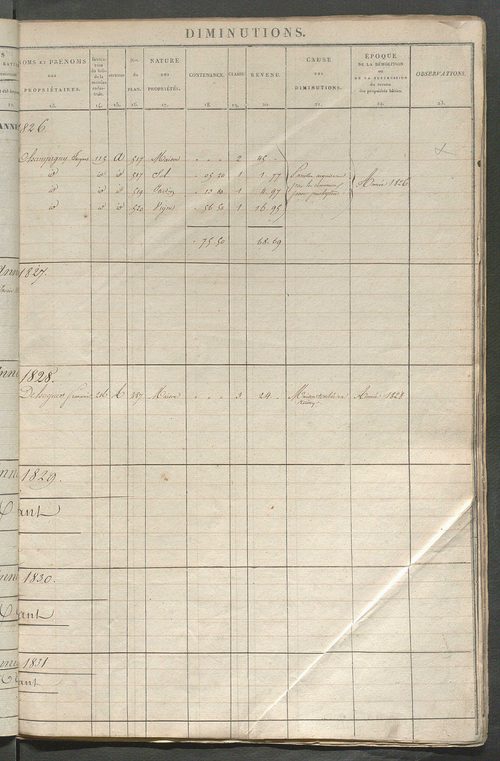 DIMINUTIONS.
NOMS ET PRÉNOMS DES PROPRIÉTAIRES.
SECTION.
Nos. DU PLAN.
NATURE DES PROPRIÉTÉS.
CONTENANCE.
CLASSE
REVENU.
CAUSE DES DIMINUTIONS.
ÉPOQUE DE LA DÉMOLITION OU DE LA SUPPRESSION du revenu des propriétés bâties.
OBSERVATIONS.
13. 14. 15. 16. 17. 18. 19. 20. 21. 22. 23.
1826.
Champigny 115 A 517 Maison . . . 2 45 .
id id id 517 Sol . 05 50 1 1 77
id id id 519 Jardin . 1 4 97
id id id 520 Vigne . 56 50 1 16 95
Année 1826
. 75 50 68 69
1827.
1828.
François 216 A 357 Maison . . . 3 24 . Maison Année 1828
1829.
1830.
1831